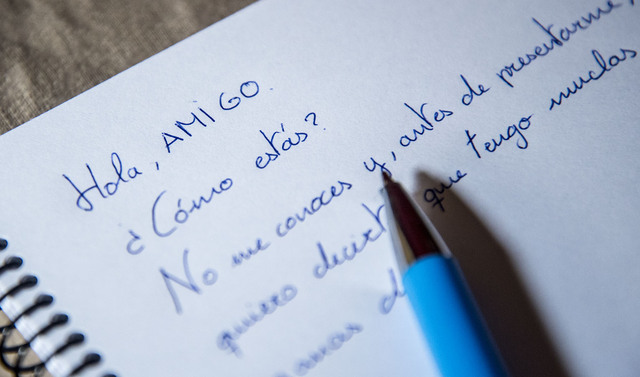 Hola, AMIGO.
¿Cómo estás?
No me conoces y, antes de presentarme,
quiero decirt que tengo muchas
ganas d